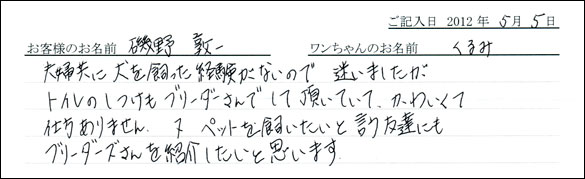 ご記入日 2012 年 5月 5日
お客様のお名前 磯野 敦一 ワンちゃんのお名前 くるみ
夫婦共に 犬を飼った経験がないので 迷いましたが
トイレのしつけも ブリーダーさんでして頂いていて、かわいくて
仕方ありません. 又 ペットを飼いたいと言う友達にも
ブリーダーズさんを紹介したいと思います.